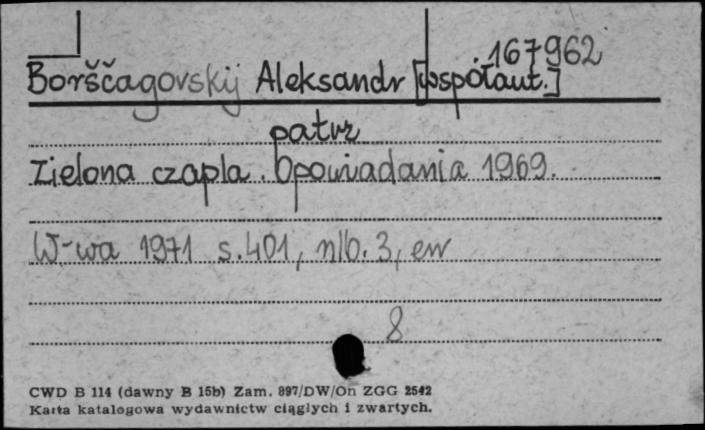 167962
Borščagovskij Aleksandr [współaut.]
patrz
Zielona czapla. Opowiadania 1969.
W-wa 1971 s. 401, nlb. 3, err
8
CWD B 114 (dawny B 15b) Zam. 897/DW/On ZGG 2542
Karta katalogowa wydawnictw ciągłych i zwartych.